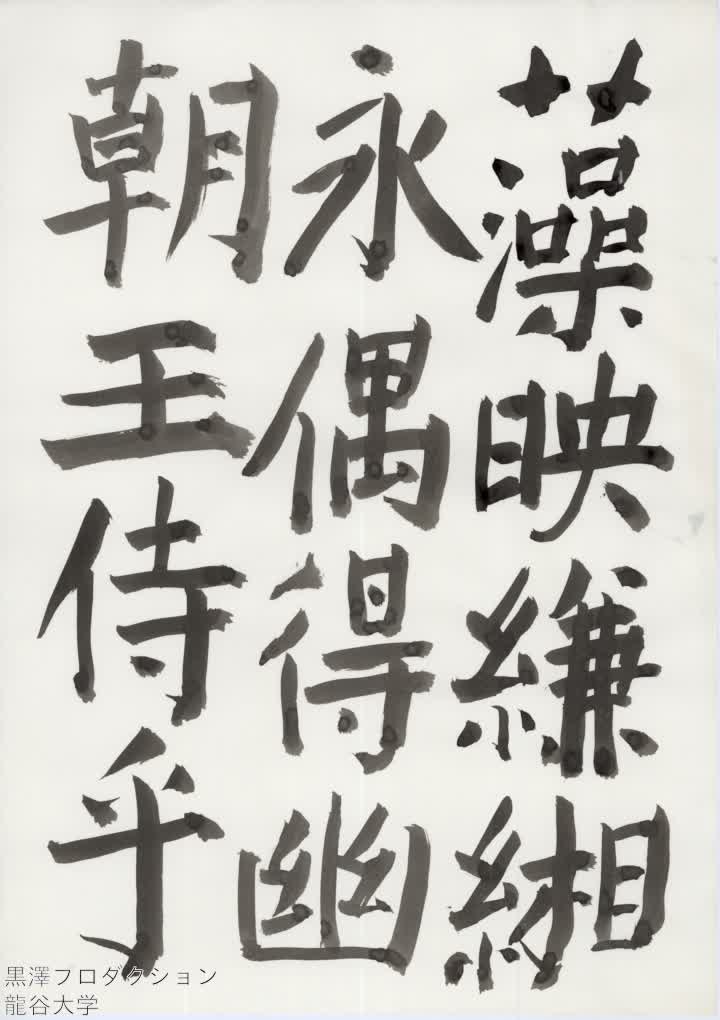 藻映縑緗
永偶得幽
朝王侍乎
黒澤プロダクション
龍谷大学